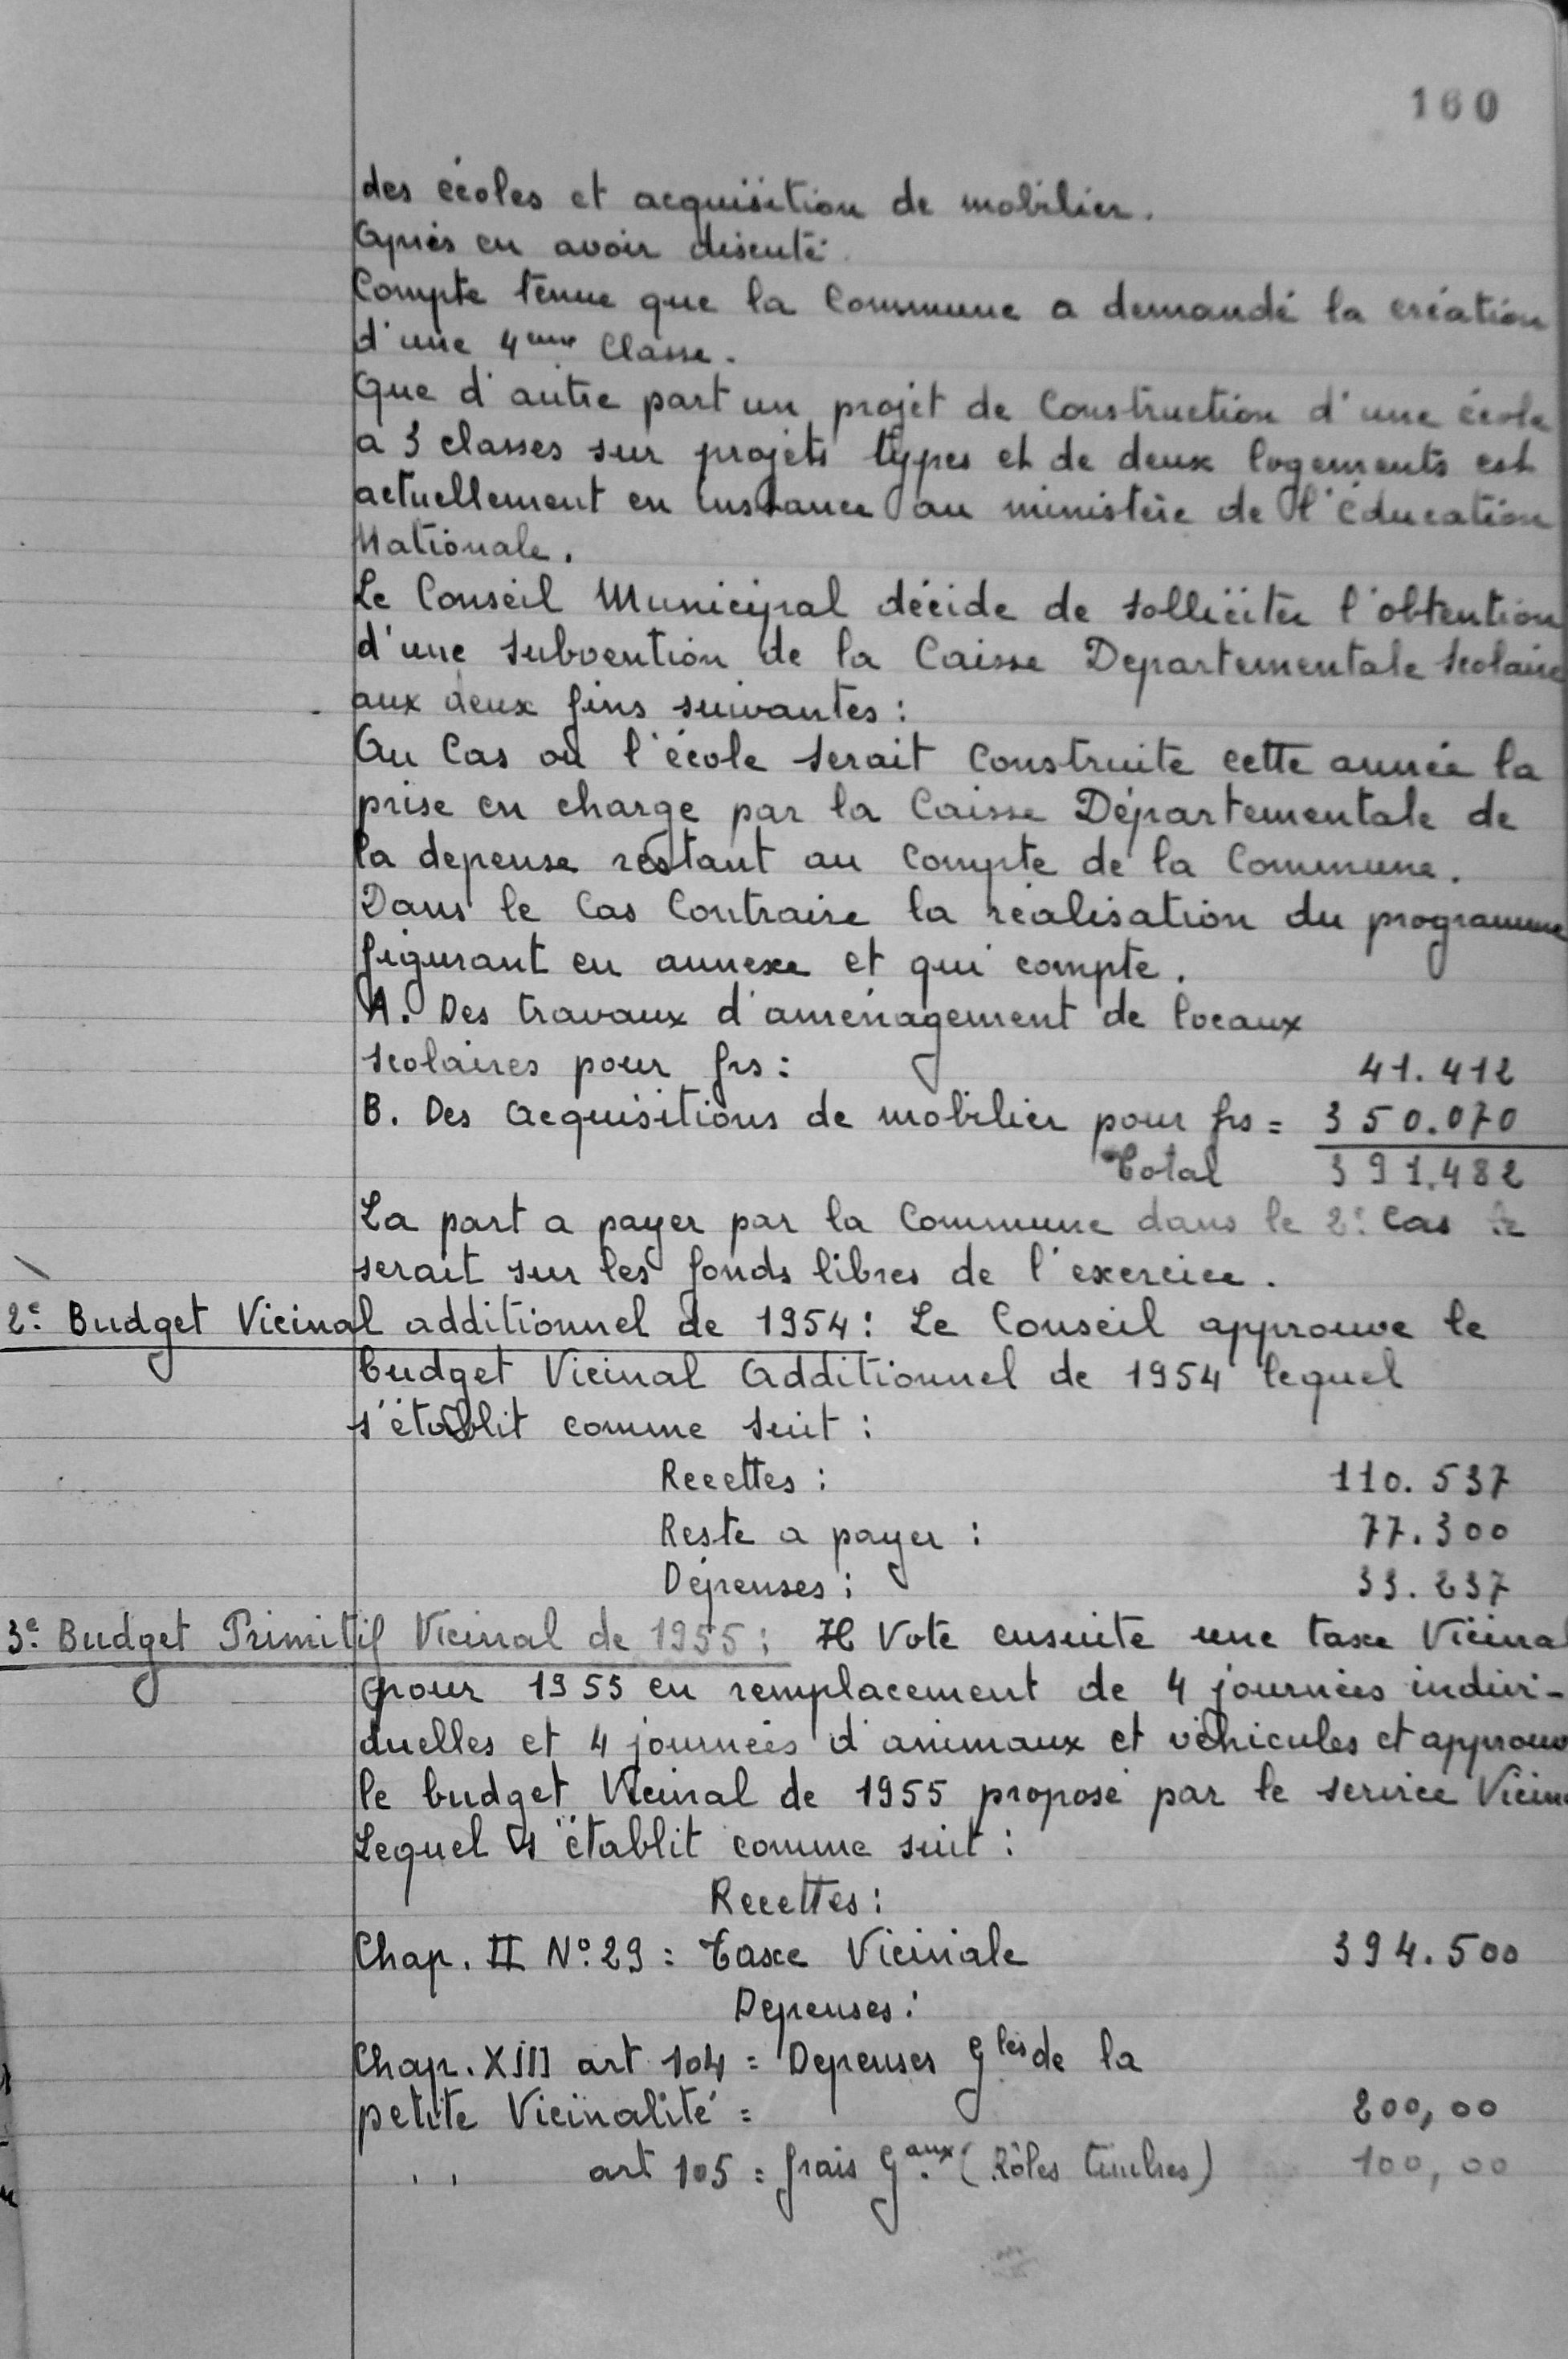 160
des écoles et acquisition de mobilier.
Après en avoir discuté.
Compte tenue que la Commune a demandé la création
d'une 4eme Classe.
Que d'autre part un projet de Construction d'une école
a 3 classes sur projets types et de deux logements est
actuellement en instance au ministère de l'Education
Nationale.
Le Conseil Municipal décide de solliciter l'obtention
d'une subvention de la Caisse Departementale scolaire
aux deux fins suivantes :
Au Cas où l'école serait Construite cette année la
prise en charge par la Caisse Départementale de
la depense restant au Compte de la Commune.
Dans le Cas Contraire la réalisation du programme
figurant en annexe et qui compte.
A. Des travaux d'aménagement de locaux
scolaires pour frs : 41.412
B. Des acquisitions de mobilier pour frs = 350.070
Total 391.482
La part a payer par la Commune dans le 2e Cas le
serait sur les fonds libres de l'exercice.
2e Budget Vicinal additionnel de 1954 : Le Conseil approuve le
budget Vicinal Additionnel de 1954 lequel
s'établit comme suit :
Recettes : 110.537
Reste a payer : 77.300
Dépenses : 33.237
3e Budget Primitif Vicinal de 1955 : Il Vote ensuite une taxe Vicinal
pour 1955 en remplacement de 4 journées indivi-
duelles et 4 journées d'animaux et véhicules et approuv
le budget Vicinal de 1955 proposé par le service Vicin
Lequel s'établit comme suit :
Recettes :
Chap. II N° 29 : Taxe Viciniale 394.500
Depenses :
Chap. XIII art 104 = Depenses Gles de la
petite Vicinalité = 200,00
' ' art 105 = frais Gaux (Rôles timbres) 100,00